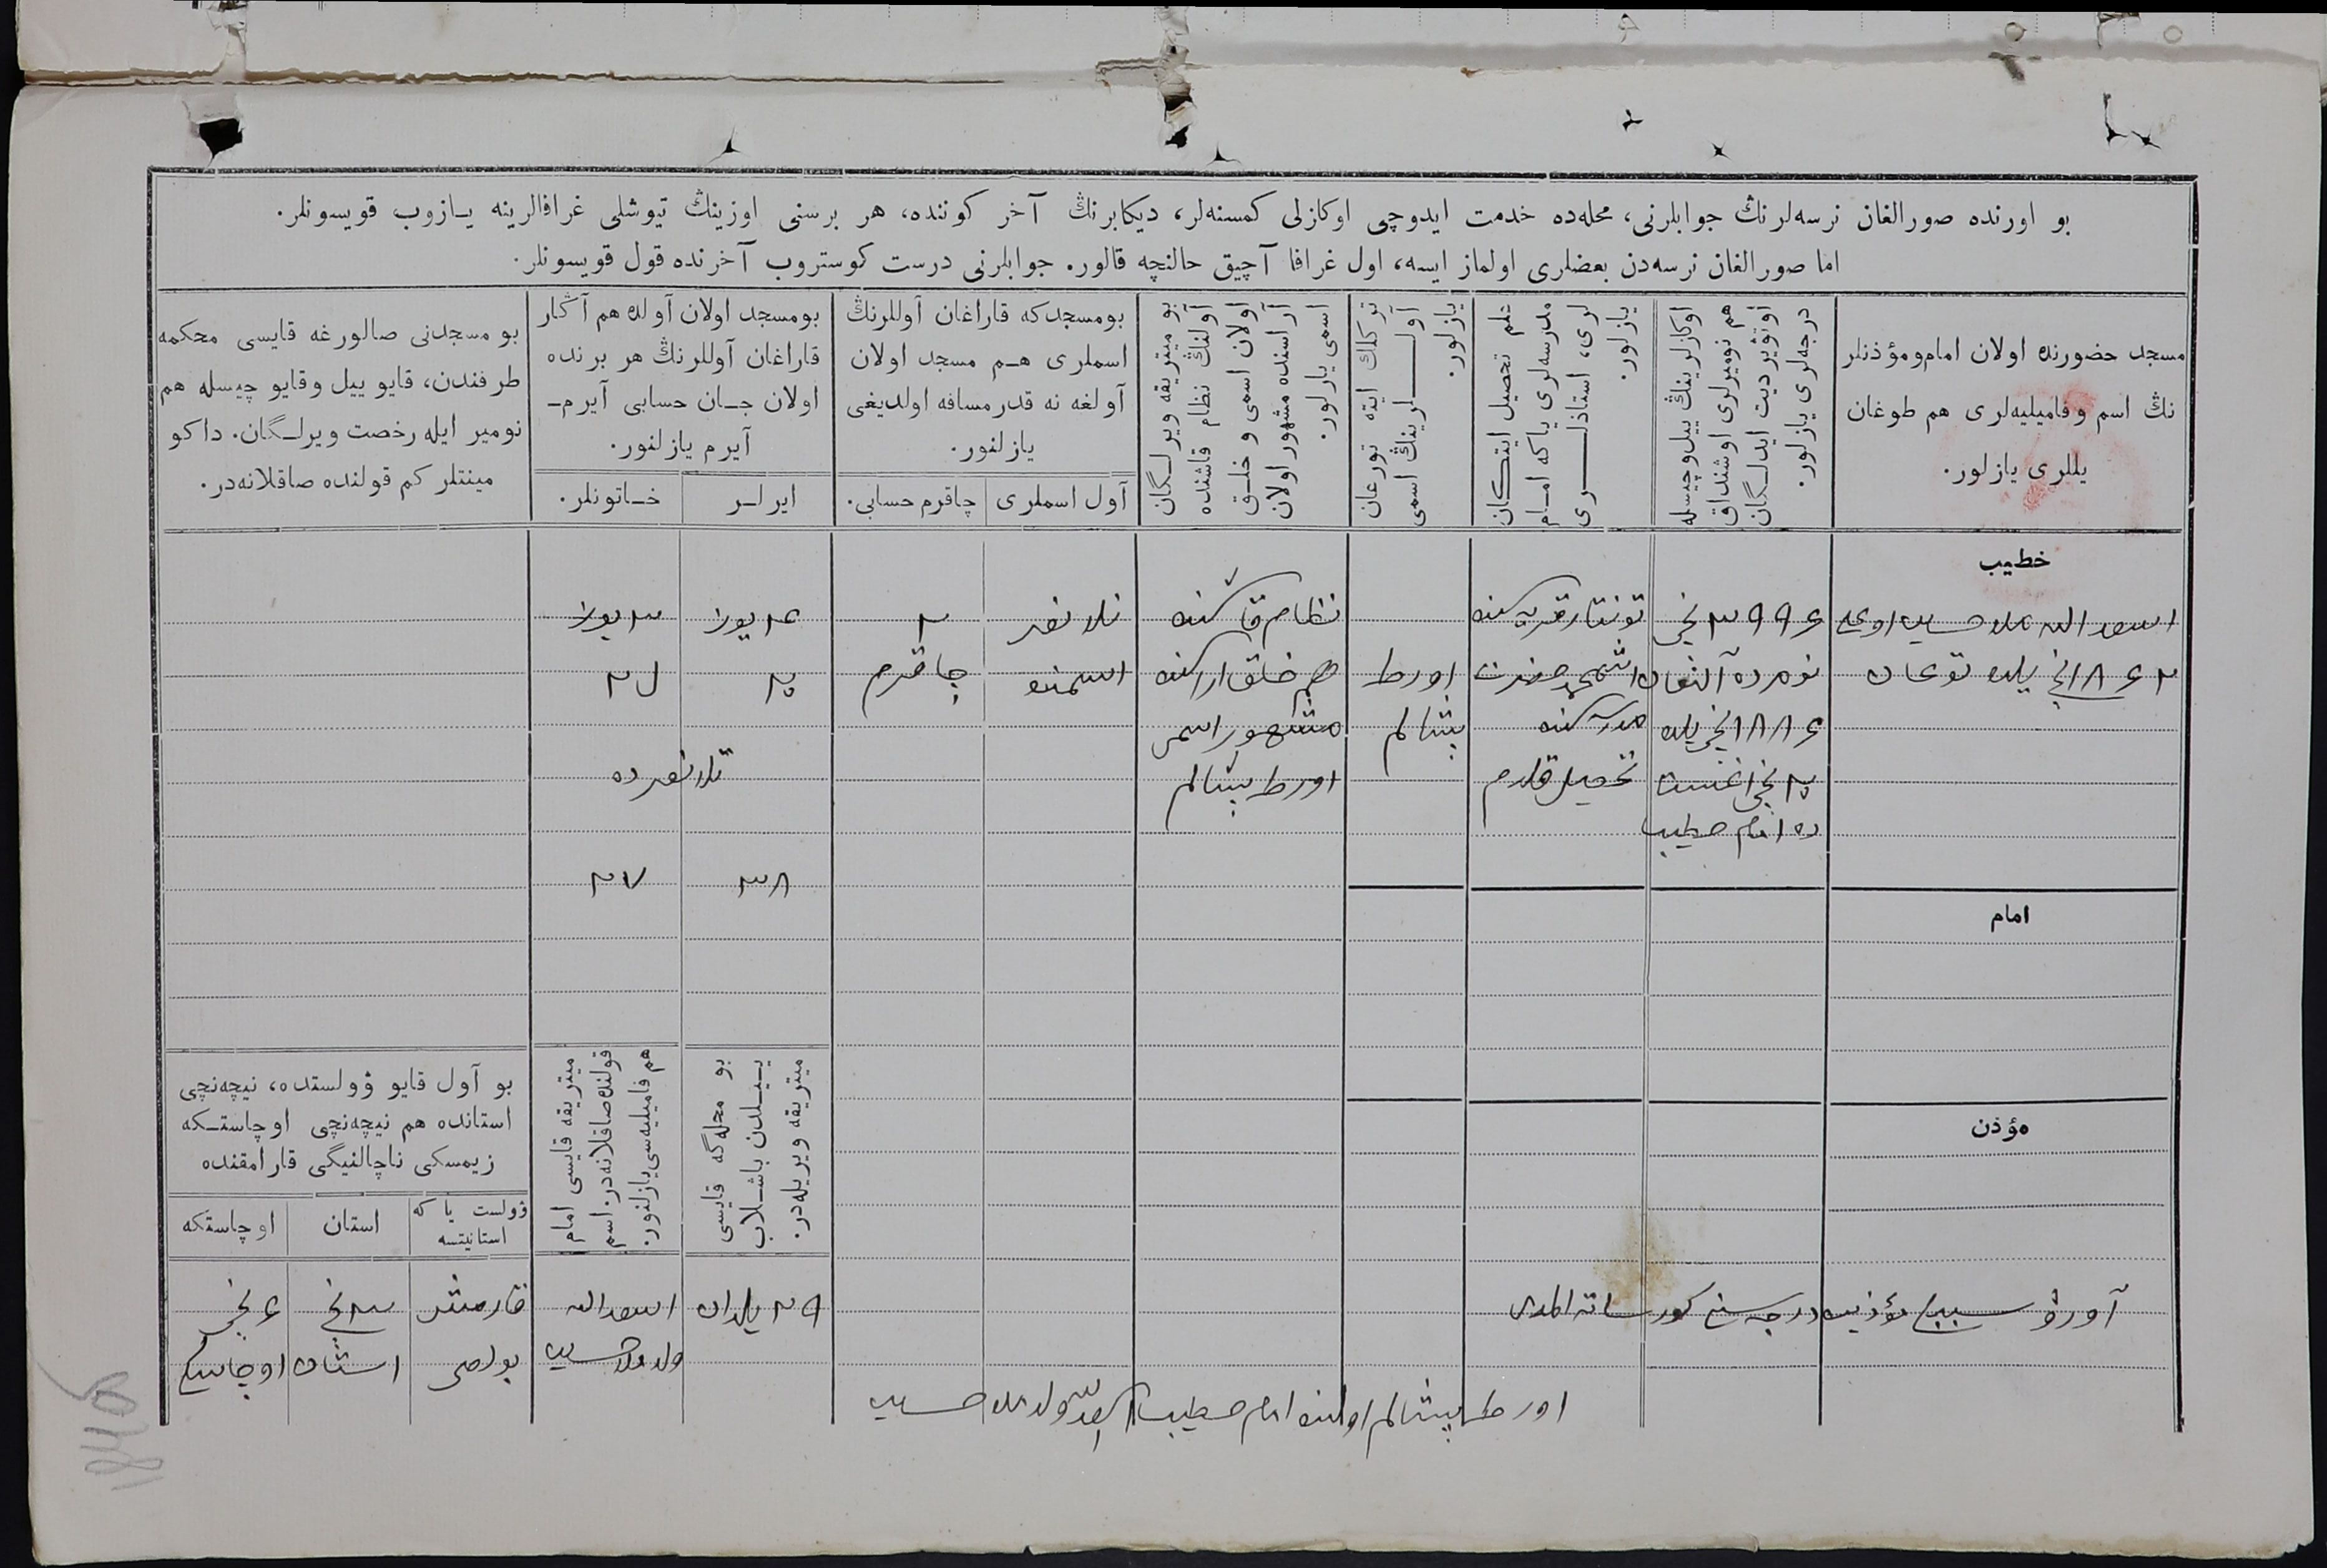 بو اورنده صورالغان نرسه‌لرنڭ جوابلرنی، محله‌ده خدمت ایدوچی اوکازلی کمسنه‌لر، دیکابرنڭ آخر کوننده، هر برسنی اوزینڭ تیوشلی غرافالرینه یـازوب قویسونلر.
اما صورالغان نرسه‌دن بعضلری اولماز ایسه، اول غرافا آچیق حالنچه قالور. جوابلرنی درست کوستروب آخرنده قول قویسونلر.
مسجد حضورنده اولان امام و مؤذنلر
نڭ اسم و فامیلیه‌لری هم طوغان
یللری یازلور.
اوکازلرینڭ ییل وچیسله
هم نومیرلری اوشنداق
اوتۋیردیت ایدلـگان
درجه‌لری یازلور.
علم تحصیل ایتـکان
مدرسه‌لری یا که امـام
لری، استاذلـری
یازلور.
ترکلك ایته تورغان
آوللرینڭ اسمی
یازلور.
بو میتریقه ویرلـگان
آولنڭ نظام قاشنده
اولان اسمی و خلـق
آراسنده مشهور اولان
اسمی یازلور.
بومسجدکه قاراغان آوللرنڭ
اسملری هـم مسجد اولان
آولغه نه قدرمسافه اولدیغی
یازلنور.
آول اسملری
چاقرم حسابی.
بومسجد اولان آولده هم آڭار
قاراغان آوللرنڭ هر برنده
اولان جـان حسابی آیرمـ
آیرم یازلنور.
ایرلـر
خـاتونلر.
بو مسجدنی صالورغه قایسی محکمه
طرفندن، قایو ییل وقایو چیسله هم
نومیر ایله رخصت ویرلـگان. داکو
مینتلر کم قولنده صاقلانه‌در.
خطیب
اسعد الله ملا حسین اوغلی
۱۸۶۲ نچی یلده توغان
۳۹۹۶ نچی
نومرده آلنغان
۱۸۸۶ نچی یلده
۲۵ نچی اغست
ده امام خطیب
تونتار قریه‌سنده
اشمحمد حضرت
مدرسه‌سنده
تحصیل قلدم
اورطا
بشالم
نظام قاشنده
هم خلق اراسنده
مشهور اسمی
اورطا بشالم
۲
چاقرم
۳۸
۲۷
امام
مؤذن
آورو سببلی مؤذنیت درجه‌سنی کورساته المدی
بو محله‌گه قایسی
ییـلدن باشـلاب
میتریقه ویریله‌در.
میتریقه قایسی امام
قولنده صاقلانه‌در. اسم
هم فامیلیه‌سی یازلنور.
بو آول قایو ۋولستده، نیچه‌نچی
استانده هم نیچه‌نچی اوچاستـکه
زیمسکی ناچالنیگی قارامقنده
ۋولست یا که
استانیتسه
استان
اوچاستکه
۲۹ یلدان
اسعد الله
ولد ملا حسین
قارمش
بولصی
۳ نچی
استان
۶ نچی
اوچاسکه
اورطا بشالم اولنده امام خطیب اسعد الله ولد ملا حسین